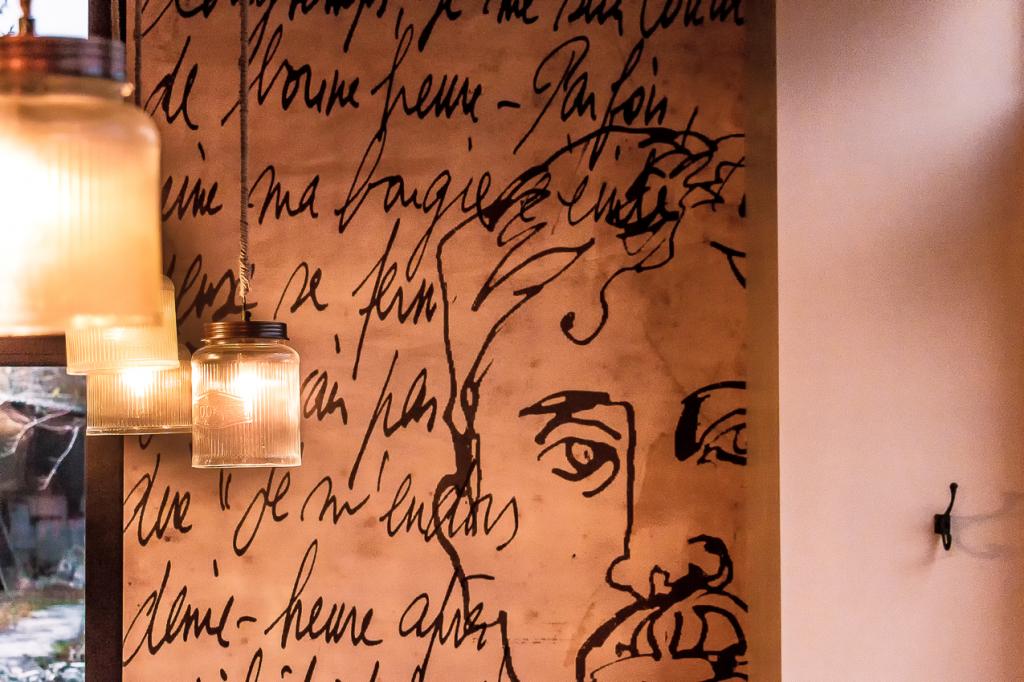 Longtemps, je me suis couché
de bonne heure - Parfois,
ine ma bougie éteinte
eux se ferm
ais pas
dire "je m'endors
demie-heure après